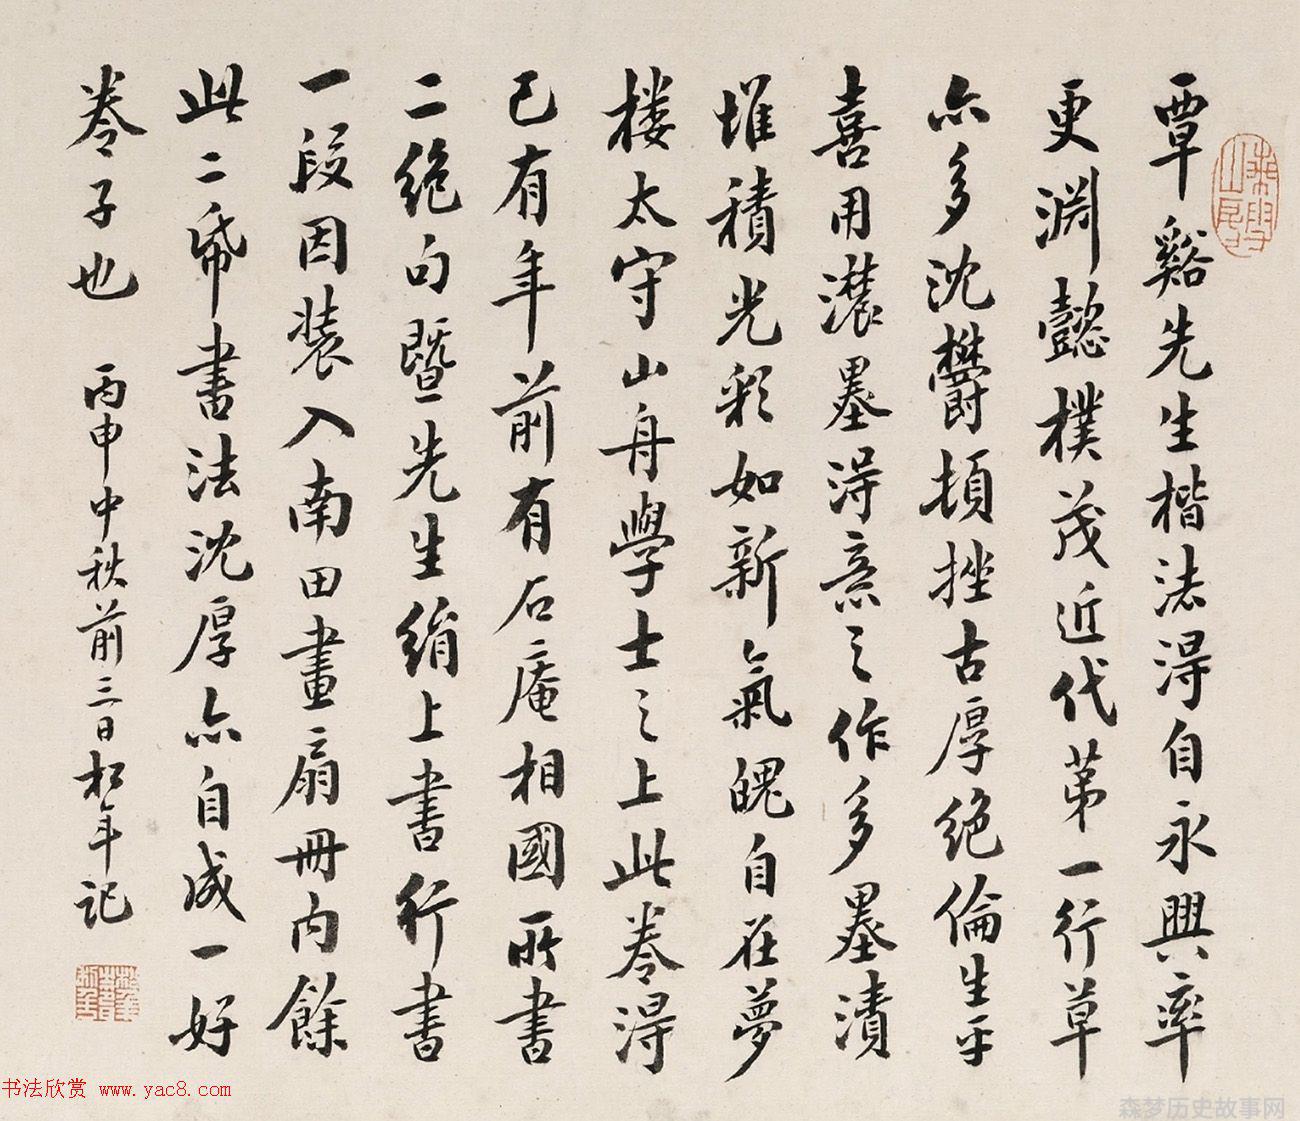 覃谿先生楷法得自永興率
更淵懿樸茂近代第一行草
亦多沈欝頓挫古厚絕倫生平
喜用濃墨得意之作多墨漬
堆積光彩如新氣魄自在夢
樓太守山舟學士之上此卷得
已有年前有石庵相國所書
二絕句暨先生絹上書行書
一段因裝入南田畫扇冊內餘
此二帋書法沈厚亦自成一好
卷子也 丙申中秋前三日松年記
书法欣赏 www.yac8.com
森梦历史故事网